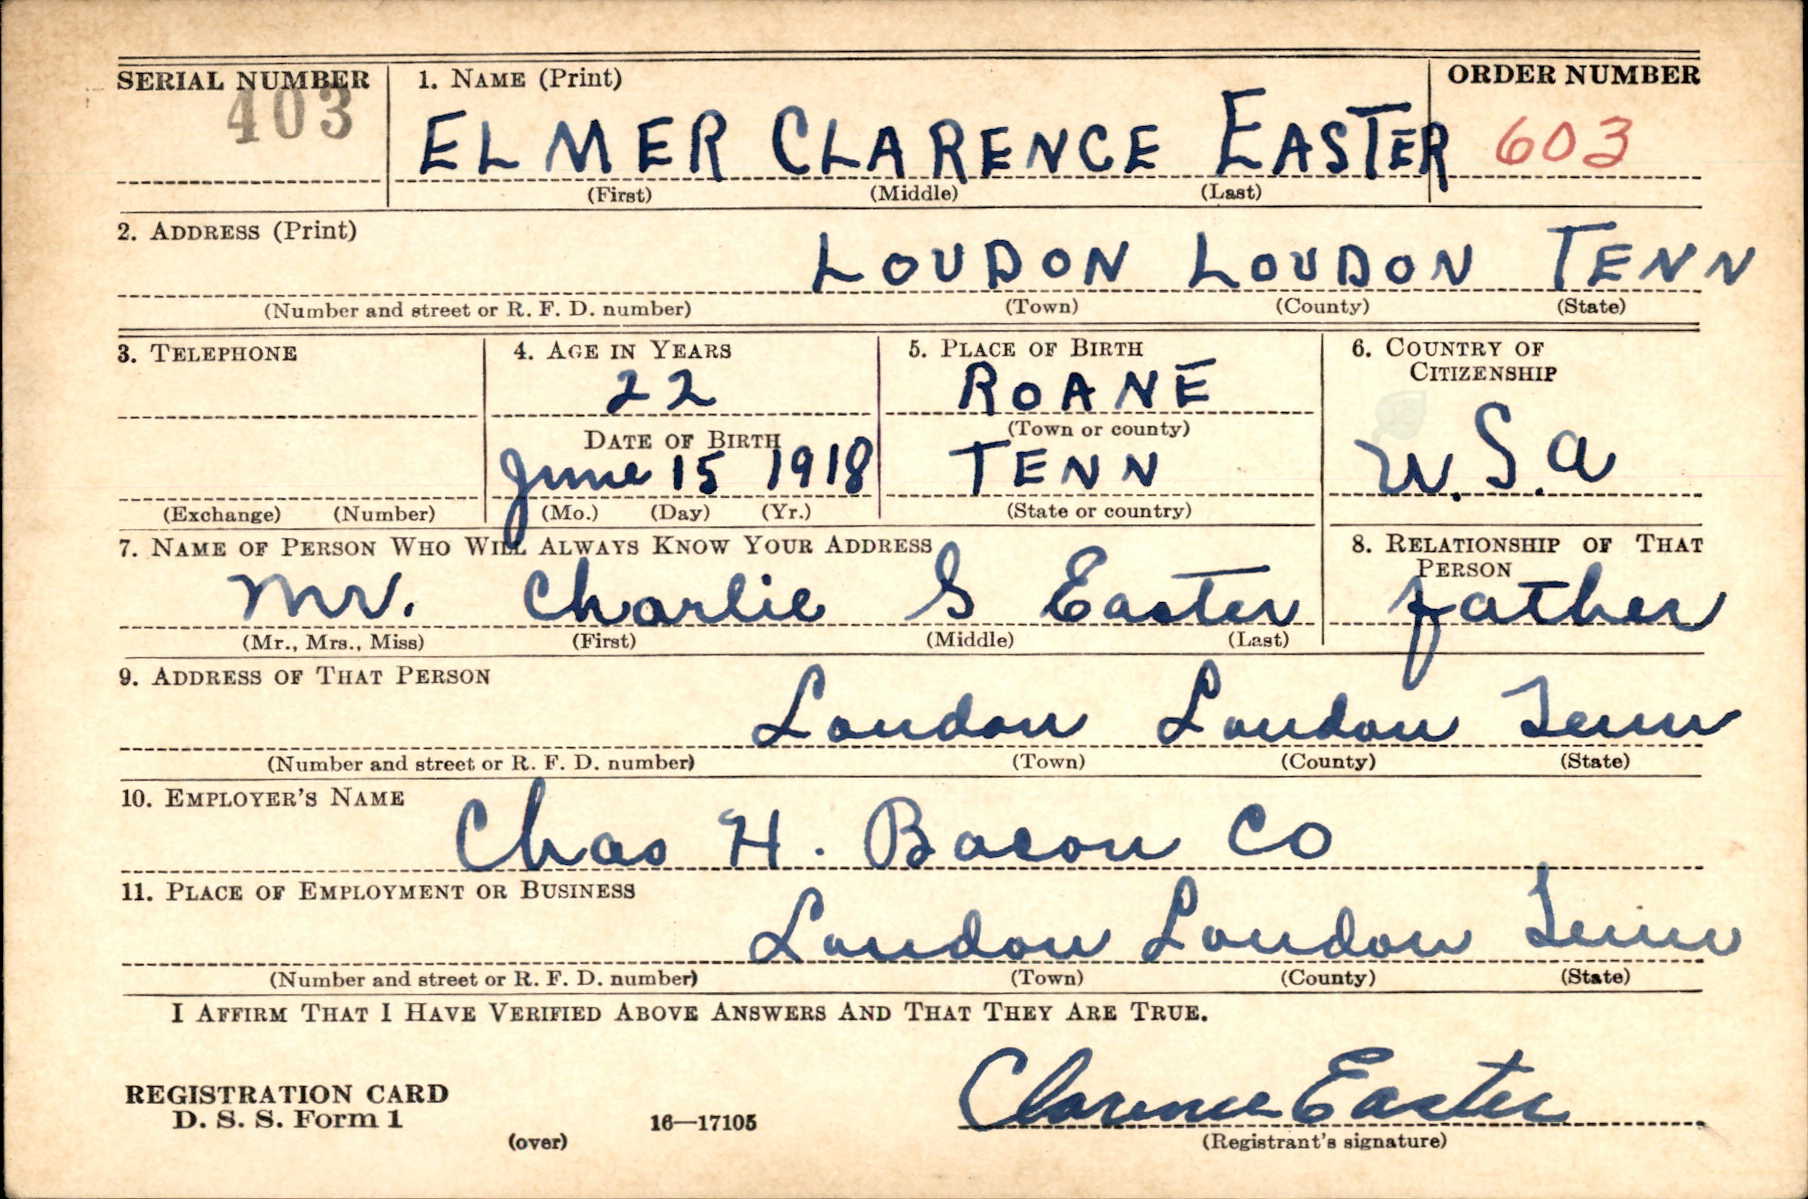 SERIAL NUMBER 1. NAME (Print) ORDER NUMBER
403 ELMER CLARENCE EASTER 603
(First) (Middle) (Last)
2. ADDRESS (Print)
LOUDON LOUDON TENN
(Number and street or R. F. D. number) (Town) (County) (State)
3. TELEPHONE 4. AGE IN YEARS 5. PLACE OF BIRTH 6. COUNTRY OF CITIZENSHIP
22 ROANE
DATE OF BIRTH (Town or county)
June 15 1918 TENN U.S.a
(Exchange) (Number) (Mo.) (Day) (Yr.) (State or country)
7. NAME OF PERSON WHO WILL ALWAYS KNOW YOUR ADDRESS 8. RELATIONSHIP OF THAT PERSON
Mr. Charlie S Easter father
(Mr., Mrs., Miss) (First) (Middle) (Last)
9. ADDRESS OF THAT PERSON
Loudon Loudon Tenn
(Number and street or R. F. D. number) (Town) (County) (State)
10. EMPLOYER'S NAME
Chas H. Bacon Co
11. PLACE OF EMPLOYMENT OR BUSINESS
Loudon Loudon Tenn
(Number and street or R. F. D. number) (Town) (County) (State)
I AFFIRM THAT I HAVE VERIFIED ABOVE ANSWERS AND THAT THEY ARE TRUE.
Clarence Easter
REGISTRATION CARD
D. S. S. Form 1 16—17105
(over) (Registrant's signature)